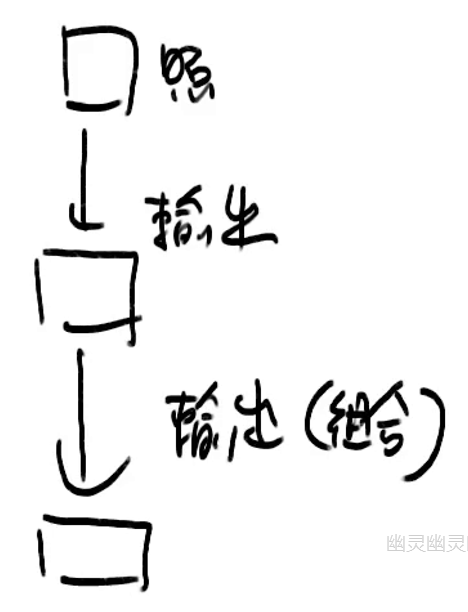 照
输出
输出(组合)
幽灵幽灵